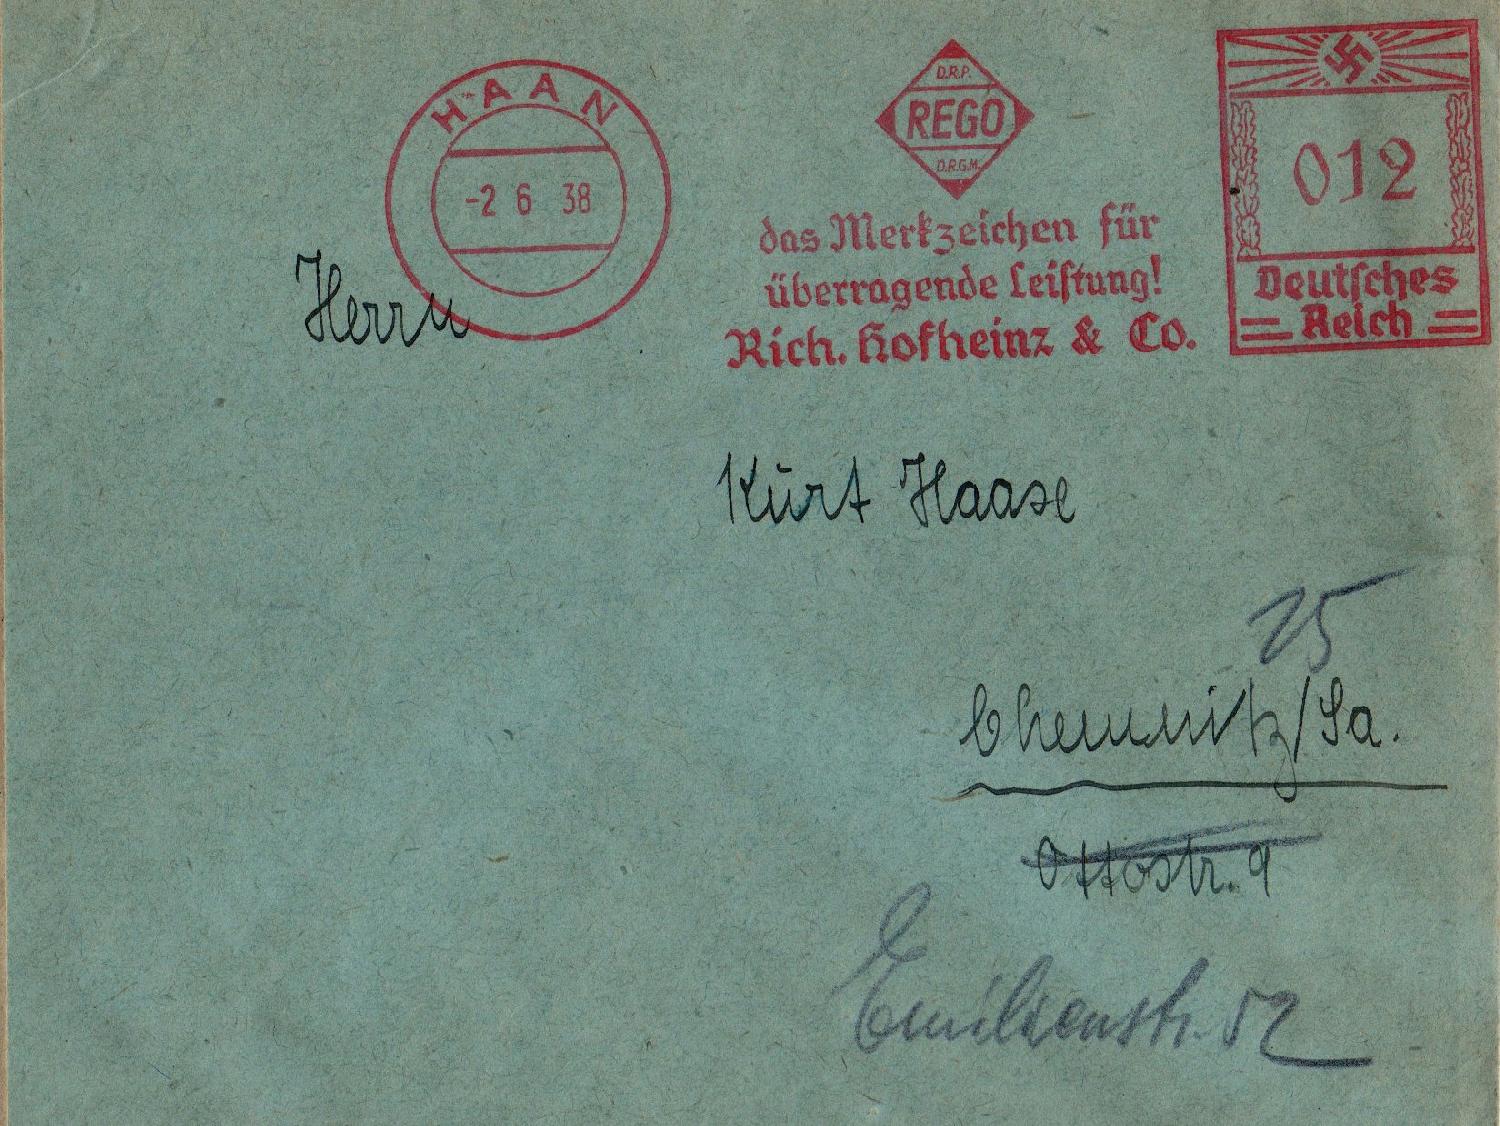 HAAN
-2 6 38
D.R.P.
REGO
D.R.G.M.
das Merkzeichen für
überragende Leistung!
Rich. Hofheinz & Co.
012
Deutsches
Reich
Herrn
Kurt Haase
15
Chemnitz/Sa.
Ottostr. 9
Emilienstr. 52